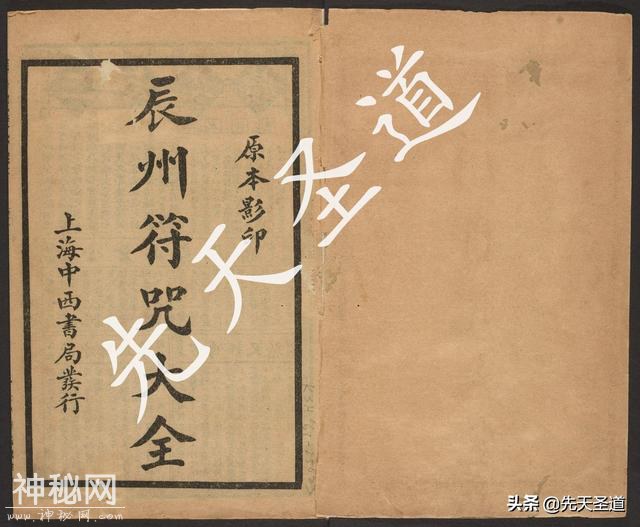 原本影印
辰州符咒大全
上海中西書局發行
先天圣道
神秘网
www.神秘网.com
头条 @先天圣道